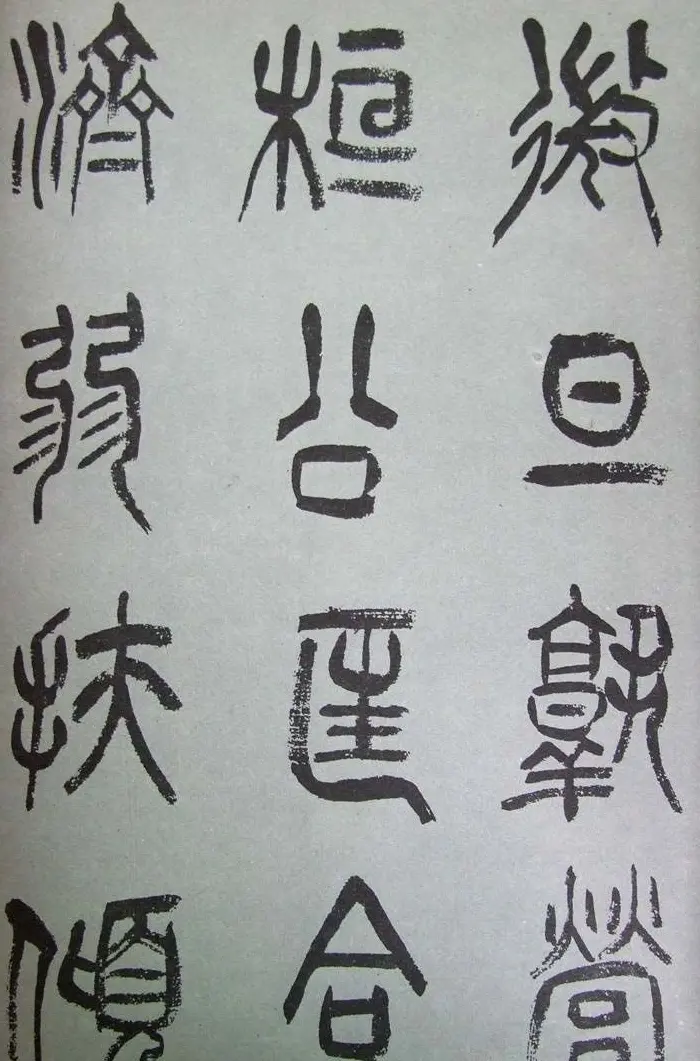 微旦孰營
桓公匡合
濟弱扶傾